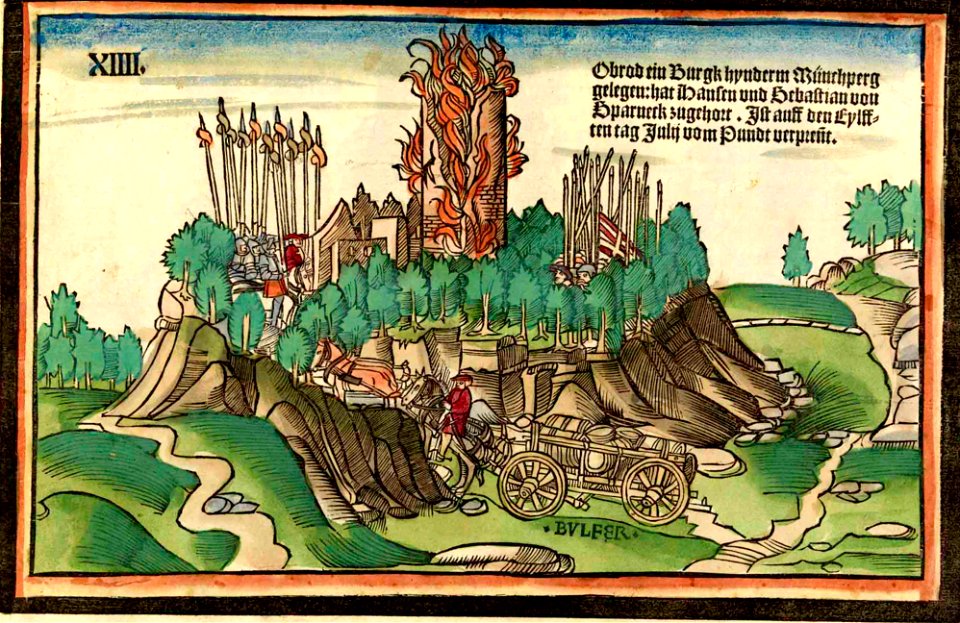 XIIII.
Obrod ein Burgk hynderm Münchperg
gelegen: hat Hansen vnd Sebastian von
Sparneck zugehort. Ist auff den Eylff-
ten tag Julij vom Pundt verpreñt.
· BVLFER ·